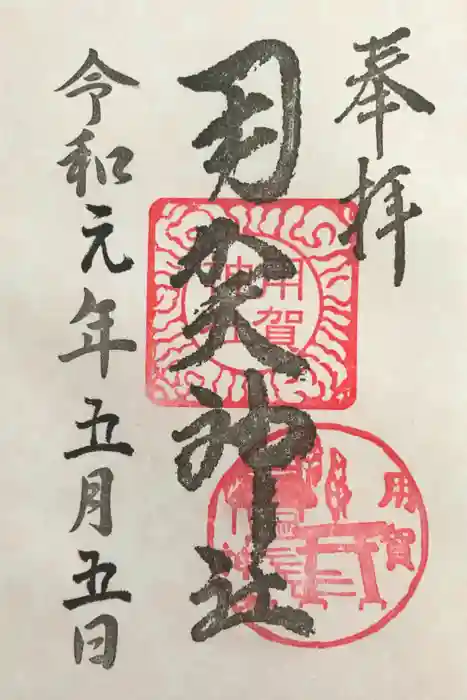 奉拝
用賀神社
令和元年五月五日
用賀
神社
用賀